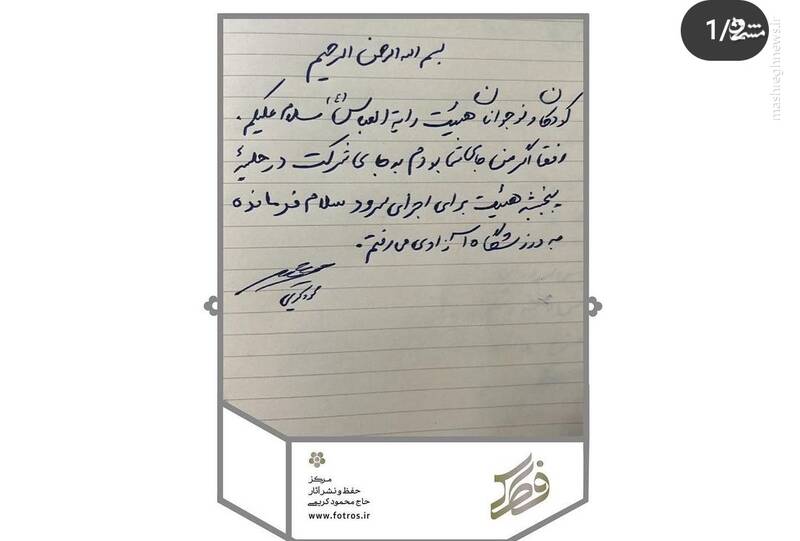 1/2
مشرق
mashreghnews.ir
بسم الله الرحمن الرحیم
کودکان و نوجوانان هیئت رایة العباس (ع) سلام علیکم.
رفقا اگر من جای شما بودم به جای شرکت در جلسهٔ
پنجشنبه هیئت برای اجرای سرود سلام فرمانده
به ورزشگاه آزادی می‌رفتم.
محمود کریمی
فطرس
مرکز
حفظ و نشر آثار
حاج محمود کریمی
www.fotros.ir